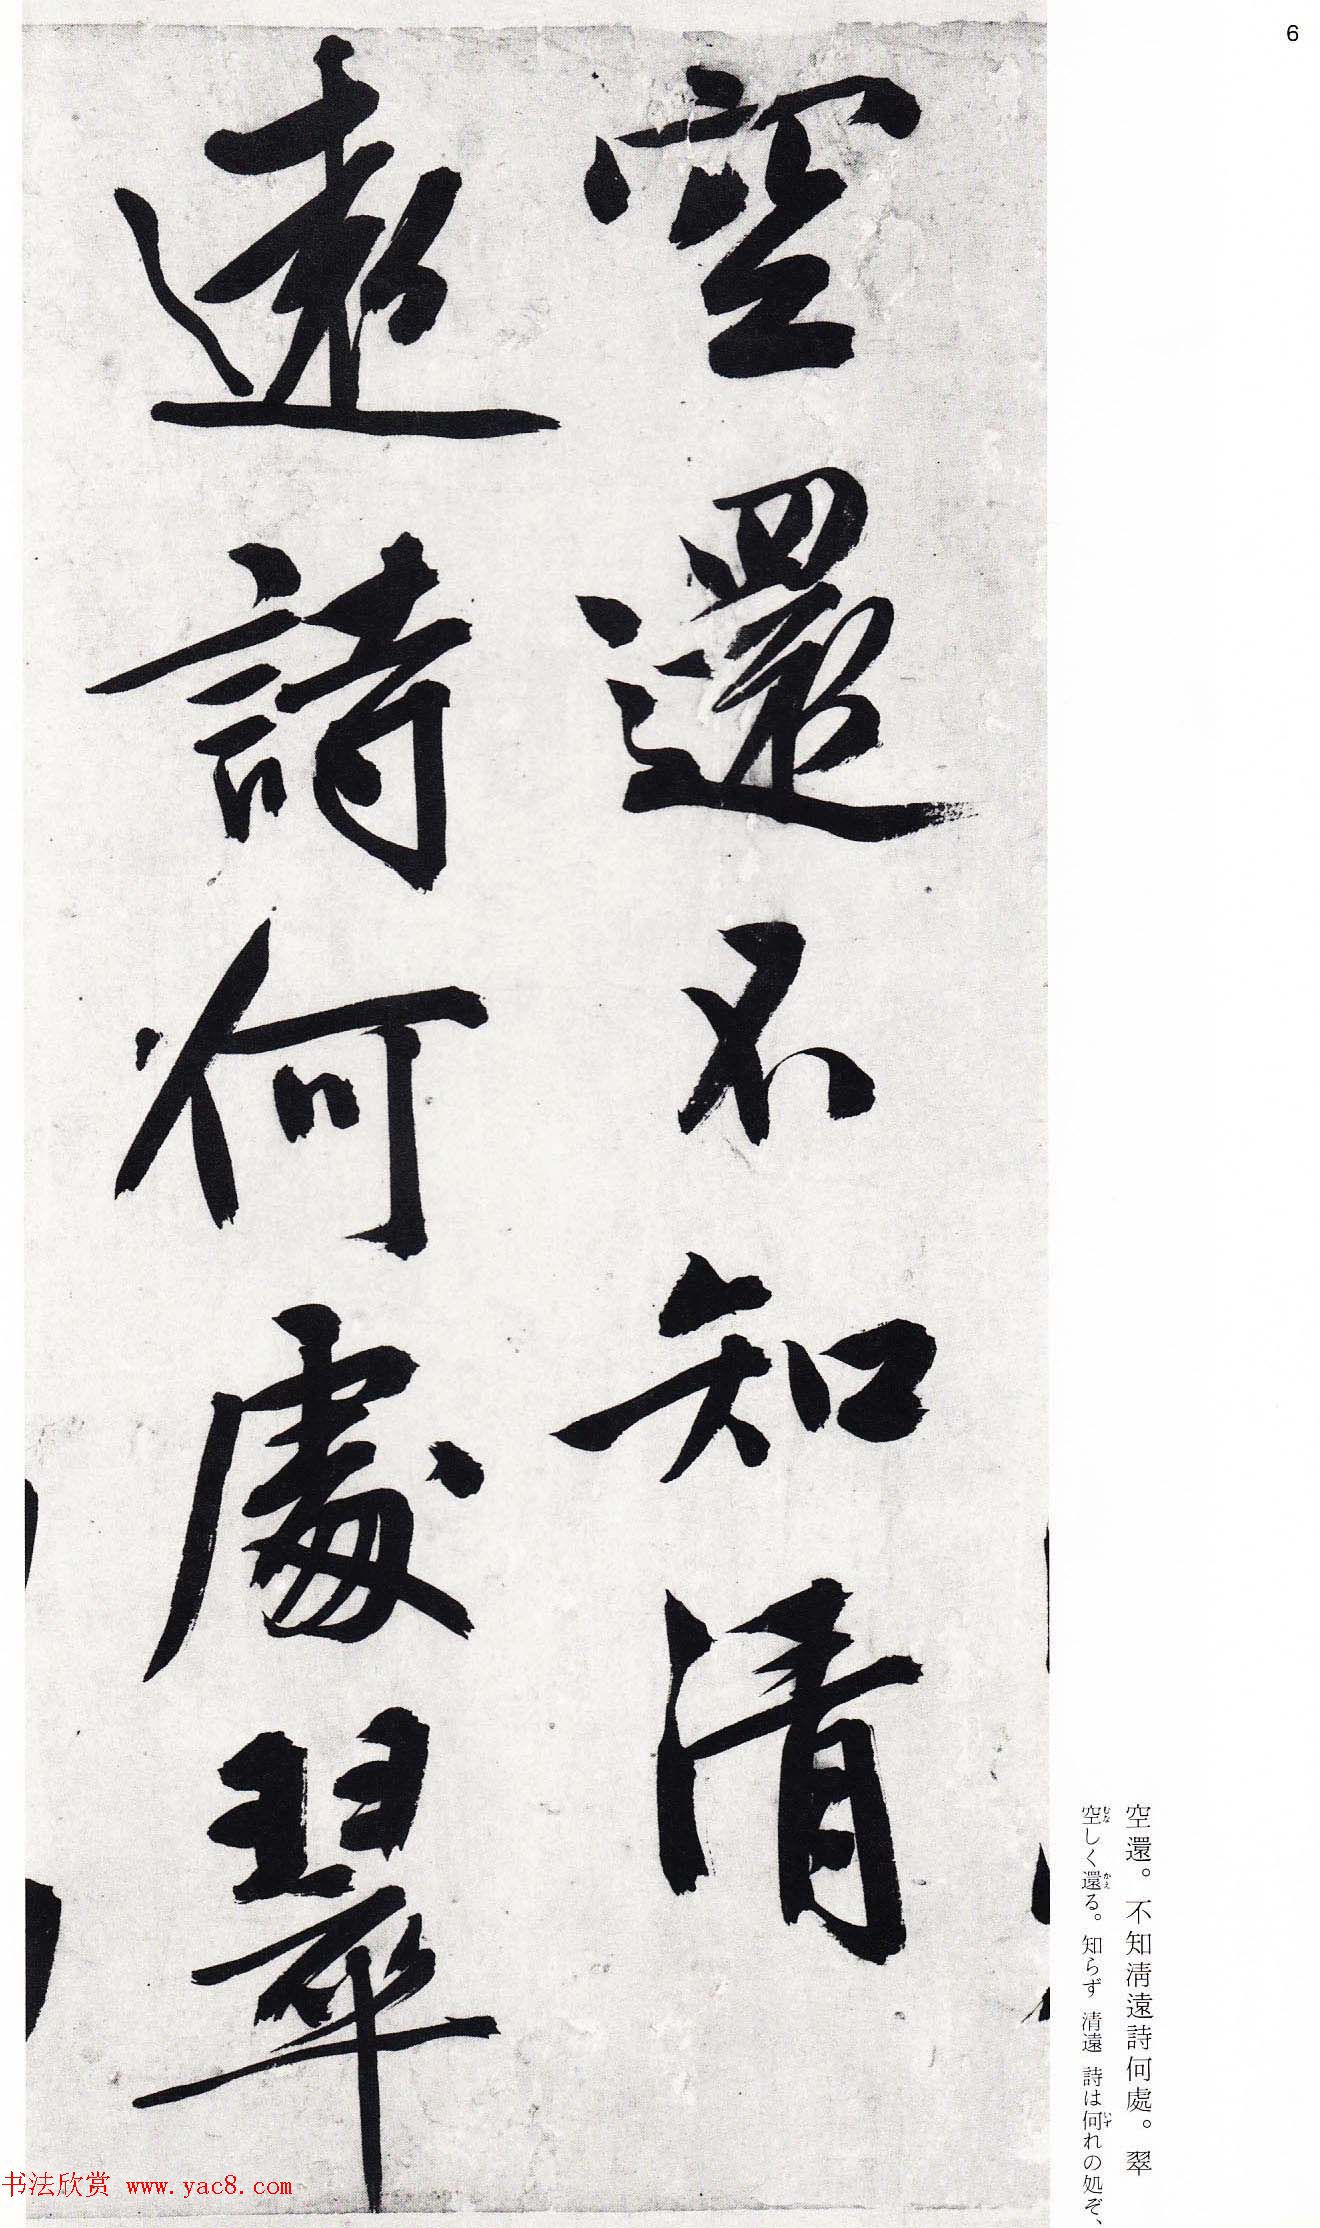 6
空還不知清
遠詩何處翠
空還。不知淸遠詩何處。翠
空しく還る。知らず 清遠 詩は何れの処ぞ、
むな
かえ
いず
书法欣赏 www.yac8.com